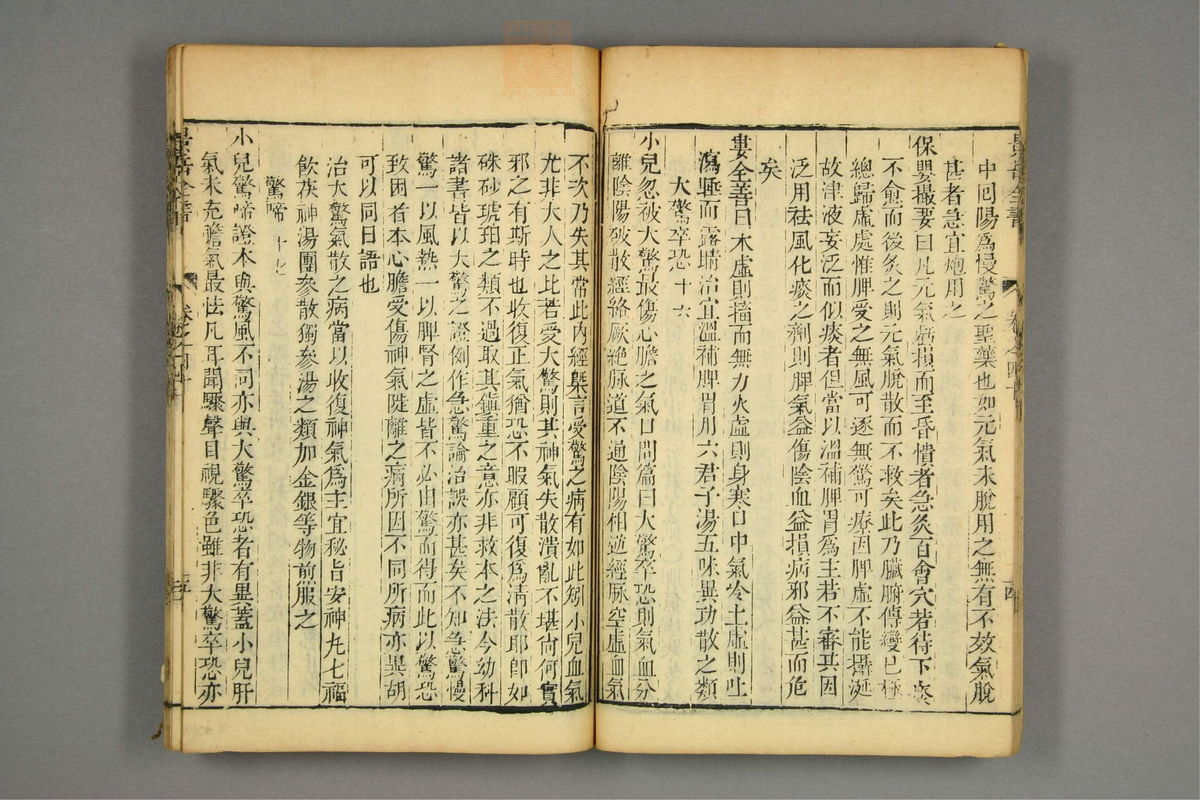 中囘陽為慢驚之聖藥也如元氣未脫用之無有不效氣脫
甚者急宜炮用之
保嬰撮要曰凡元氣虧損而至昏憒者急灸百會穴若待下痰
不愈而後灸之則元氣脫散而不救矣此乃臟腑傳變已極
總歸虛處惟脾受之無風可逐無驚可療因脾虛不能攝涎
故津液妄泛而似痰者但當以溫補脾胃為主若不審其因
泛用祛風化痰之劑則脾氣益傷陰血益損病邪益甚而危
矣
婁全善曰木虛則搐而無力火虛則身寒口中氣冷土虛則吐
瀉睡而露睛治宜溫補脾胃用六君子湯五味異功散之類
大驚卒恐 十六
小兒忽被大驚最傷心膽之氣口問篇曰大驚卒恐則氣血分
離陰陽破散經絡厥絶脉道不通陰陽相逆經脉空虛血氣
不次乃失其常此内經槩言受驚之病有如此矧小兒血氣
尤非大人之比若受大驚則其神氣失散潰亂不堪尚何實
邪之有斯時也收復正氣猶恐不暇顧可復為清散耶即如
硃砂琥珀之類不過取其鎮重之意亦非救本之法今幼科
諸書皆以大驚之證例作急驚論治誤亦甚矣不知急驚慢
驚一以風熱一以脾腎之虛皆不必由驚而得而此以驚恐
致困者本心膽受傷神氣陡離之病所因不同所病亦異胡
可以同日語也
治大驚氣散之病當以收復神氣為主宜秘旨安神丸七福
飲茯神湯團參散獨參湯之類加金銀等物煎服之
驚啼 十七
小兒驚啼證本與驚風不同亦與大驚卒恐者有異蓋小兒肝
氣未充膽氣最怯凡耳聞驟聲目視驟色雖非大驚卒恐亦
景岳全書
卷之四十
四
景岳全書
卷之四十